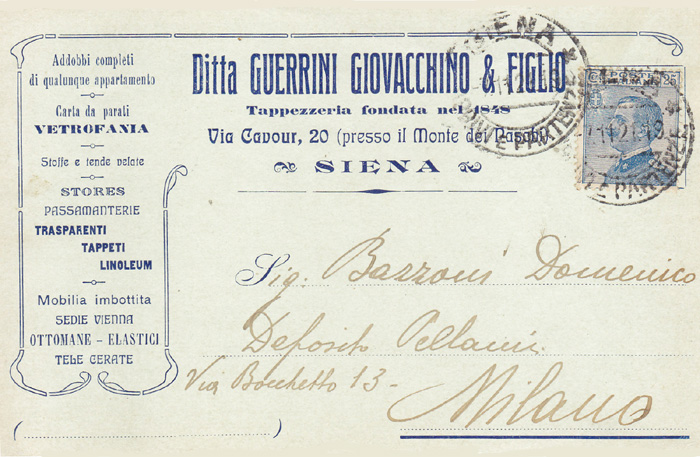 Addobbi completi
di qualunque appartamento
Carta da parati
VETROFANIA
Stoffe e tende velate
STORES
PASSAMANTERIE
TRASPARENTI
TAPPETI
LINOLEUM
Mobilia imbottita
SEDIE VIENNA
OTTOMANE - ELASTICI
TELE CERATE
Ditta GUERRINI GIOVACCHINO & FIGLIO
Tappezzeria fondata nel 1848
Via Cavour, 20 (presso il Monte dei Paschi)
SIENA
SIENA
Sig. Bazzoni Domenico
Deposito Pellami
Via Bocchetto 13-
Milano